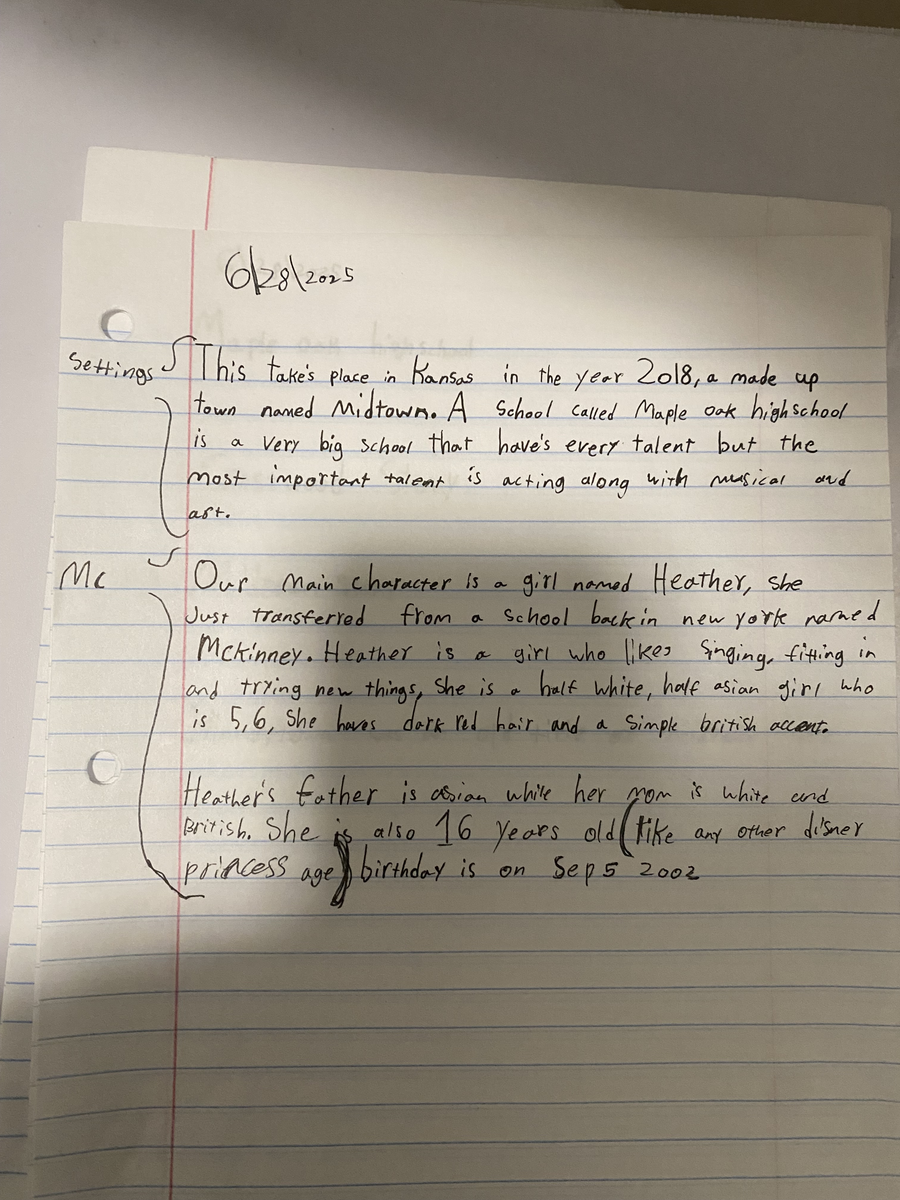 6/28/2025
Settings This take's place in Kansas in the year 2018, a made up
town named Midtown. A School called Maple oak highschool
is a very big school that have's every talent but the
most important talent is acting along with musical and
art.
Mc Our main character is a girl named Heather, she
Just transferred from a school back in new york named
Mckinney. Heather is a girl who likes Singing, fitting in
and trying new things, She is a half white, half asian girl who
is 5,6, She haves dark red hair and a simple british accent.
Heather's father is asian while her mom is white and
British. She is also 16 years old (like any other disner
princess age) birthday is on Sep 5 2002